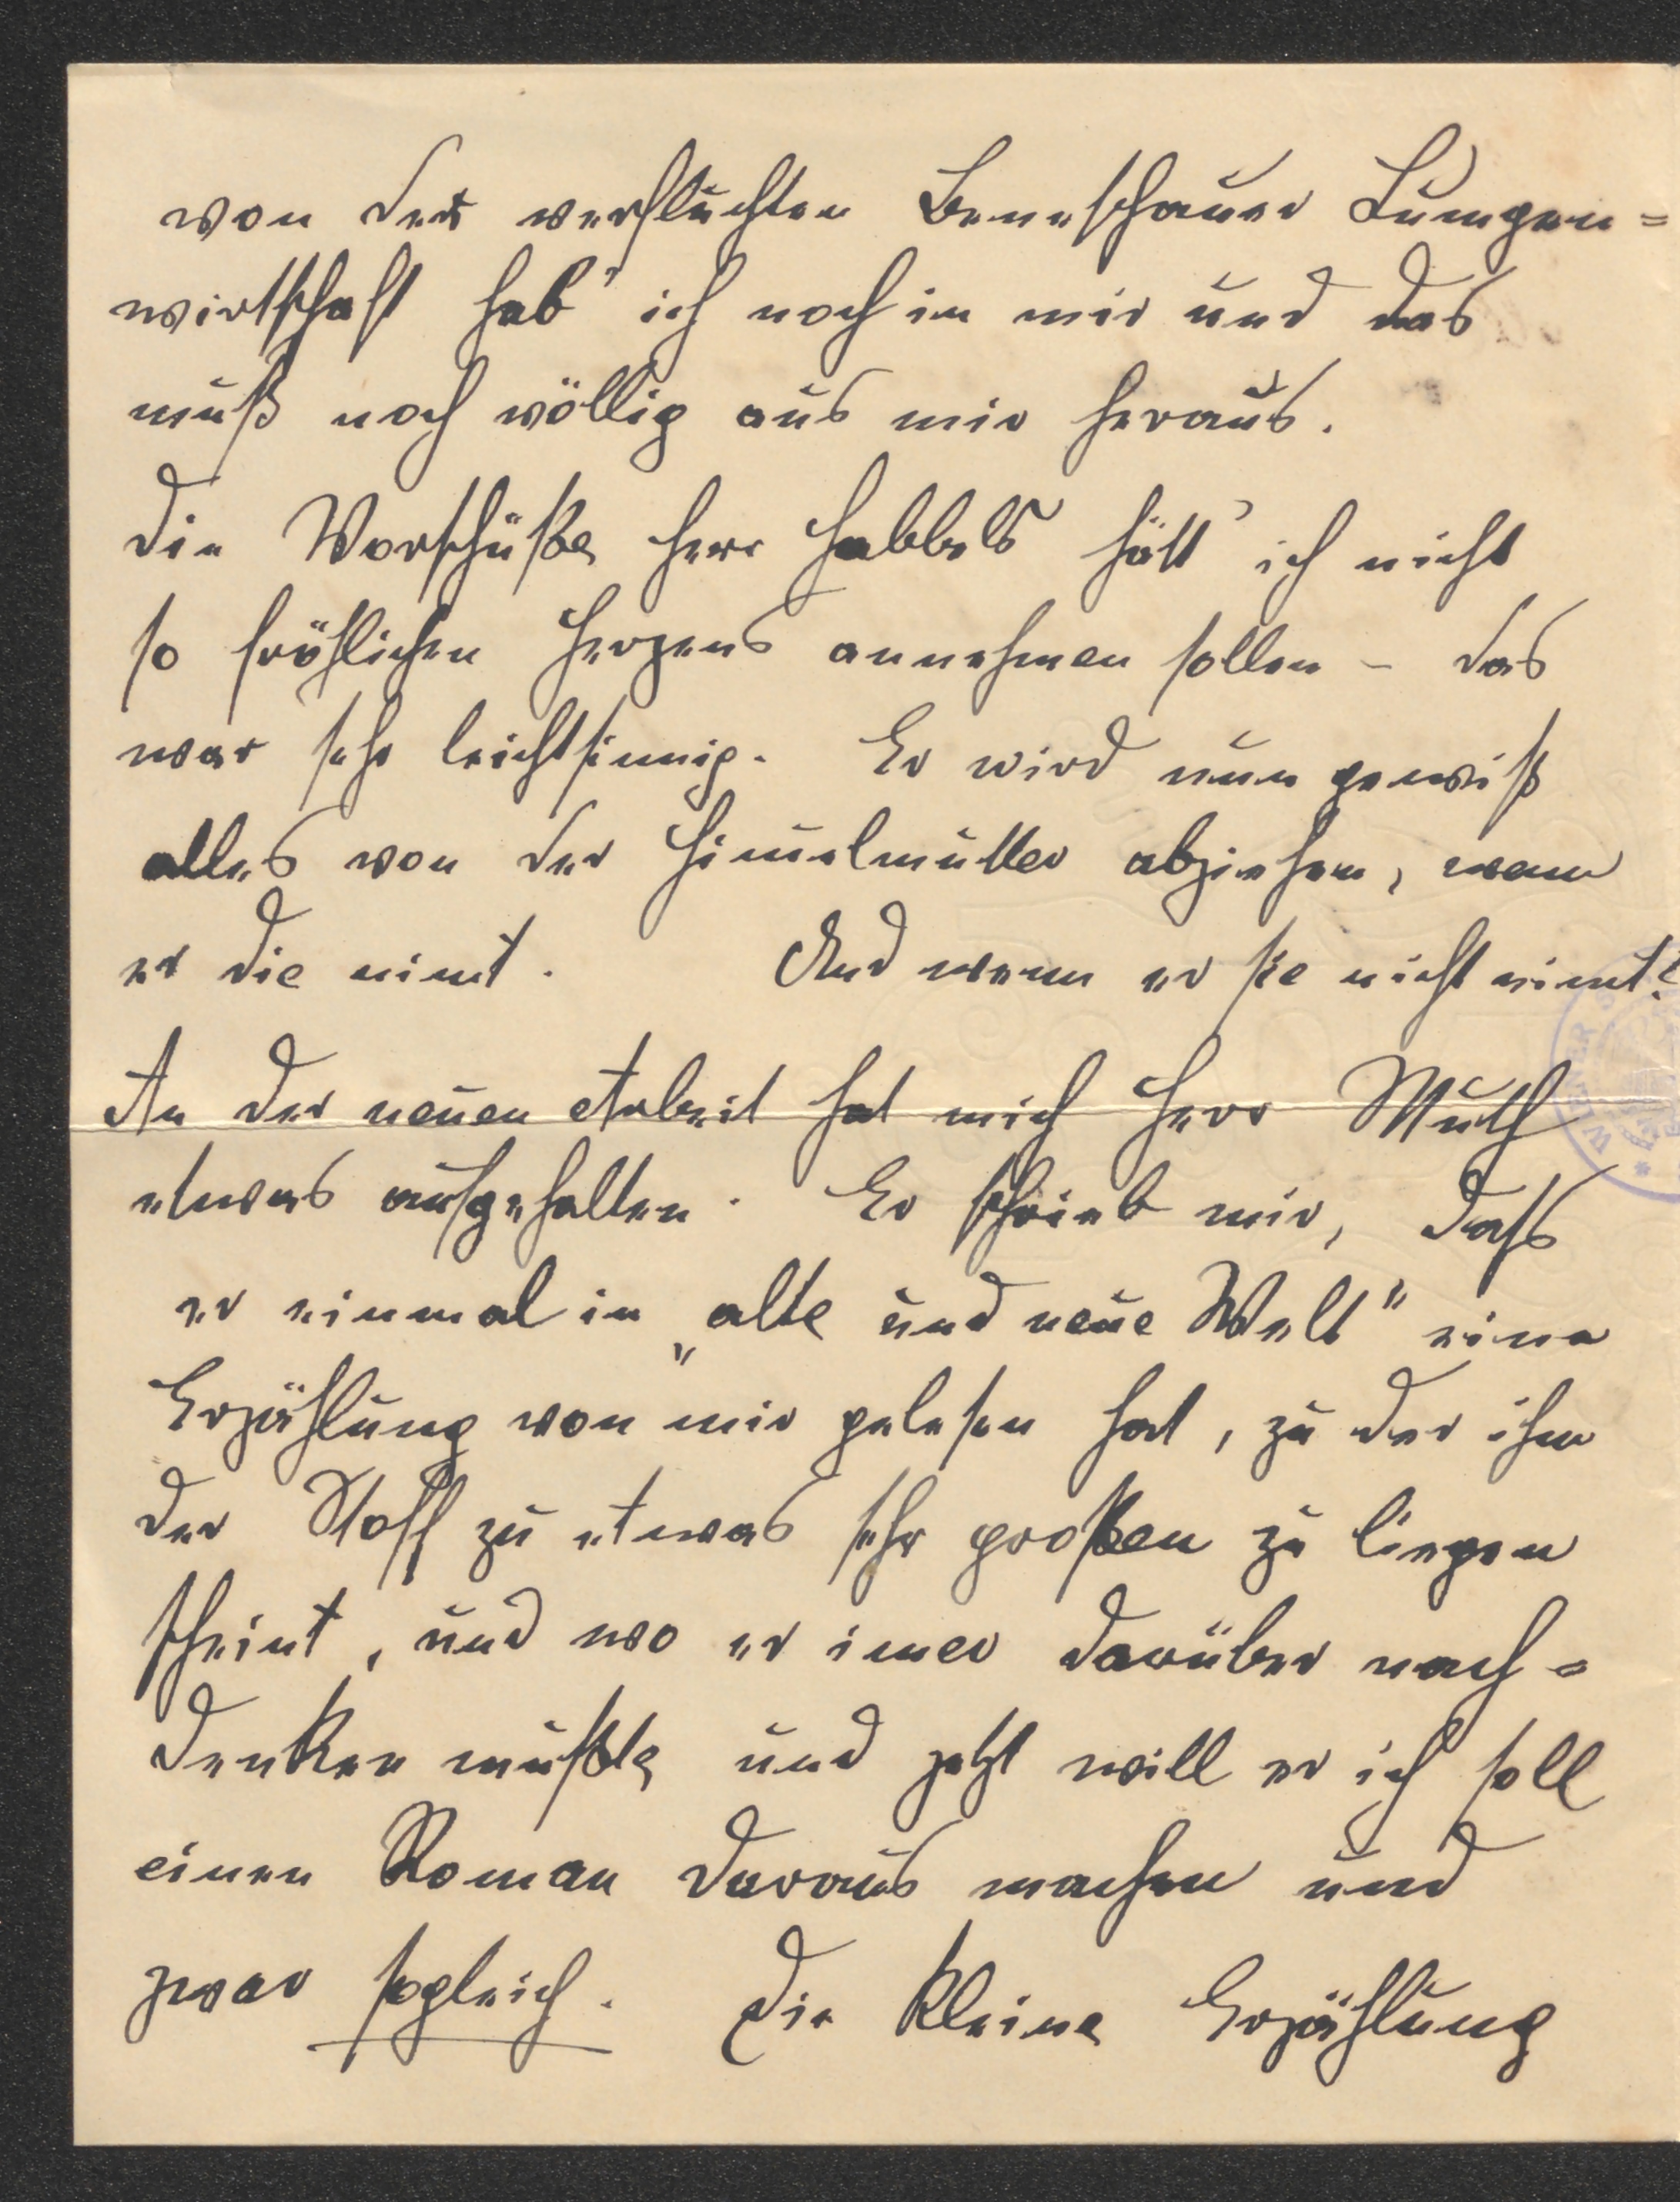 von der verfluchten Beneschauer Lumpen=
wirtschaft hab' ich noch in mir und das
muß noch völlig aus mir heraus.
Die Vorschüße Herr Habbels hätt' ich nicht
so fröhlichen Herzens annehmen sollen – das
war sehr leichtsinnig. Er wird nun gewiß
alles von der Himelmutter abziehen, wenn
er die nimt. Und wenn er sie nicht nimt?
An der neuen Arbeit hat mich Herr Muth
etwas aufgehalten. Er schrieb mir, dass
er einmal in „alte und neue Welt" eine
Erzählung von mir gelesen hat, zu der ihm
der Stoff zu etwas sehr großen zu liegen
scheint, und wo er imer darüber nach=
denken mußte und jetzt will er ich soll
einen Roman daraus machen und
zwar sogleich. Die kleine Erzählung